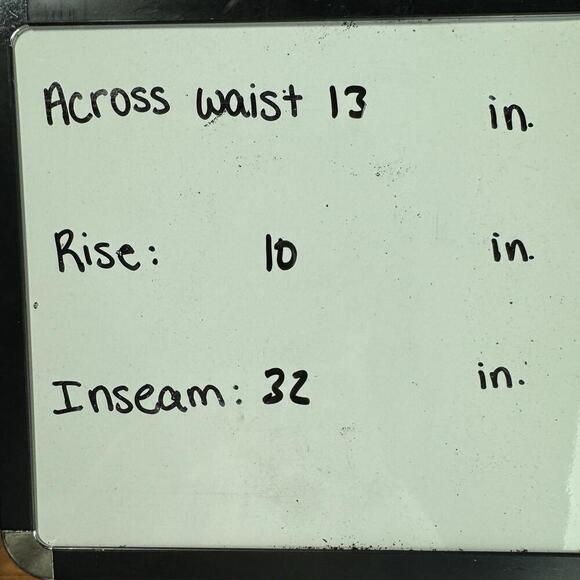 Across waist 13 in.
Rise: 10 in.
Inseam: 32 in.